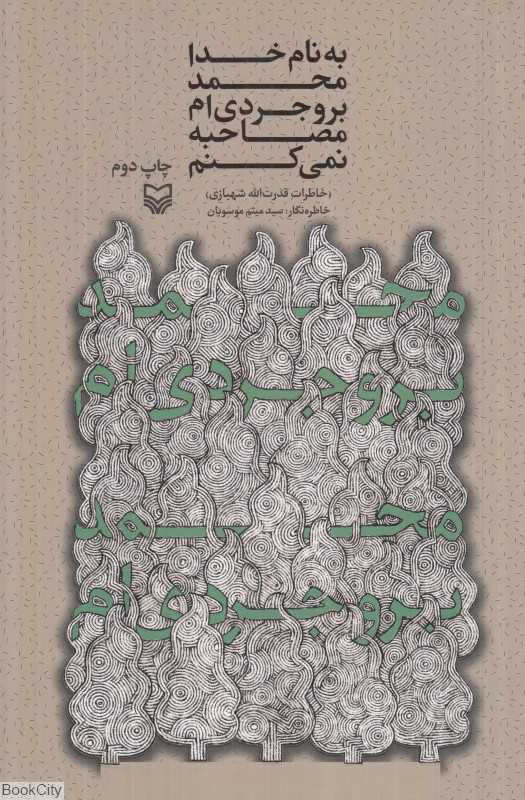 به نام خدا
محمد
بروجردی‌ام
مصاحبه
نمی‌کنم
چاپ دوم
(خاطرات قدرت‌الله شهبازی)
خاطره‌نگار: سید میثم موسویان
محمد
بروجردی‌ام
محمد
بروجردی‌ام
BookCity